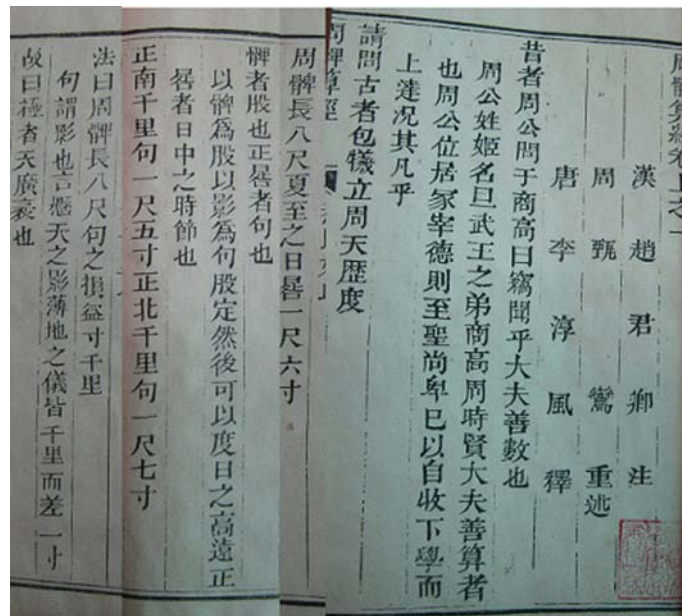 周髀算經卷上之一
漢趙君卿注
周甄鸞重述
唐李淳風釋
昔者周公問于商高曰竊聞乎大夫善數也
周公姓姬名旦武王之弟商高周時賢大夫善算者
也周公位居冢宰德則至聖尚卑已以自收下學而
上達况其凡乎
請問古者包犧立周天歷度
周髀算經
周髀長八尺夏至之日晷一尺六寸
髀者股也正晷者句也
以髀爲股以影爲句股定然後可以度日之高遠正
晷者日中之時節也
正南千里句一尺五寸正北千里句一尺七寸
法曰周髀長八尺句之損益寸千里
句謂影也言懸天之影薄地之儀皆千里而差一寸
故曰極者天廣袤也